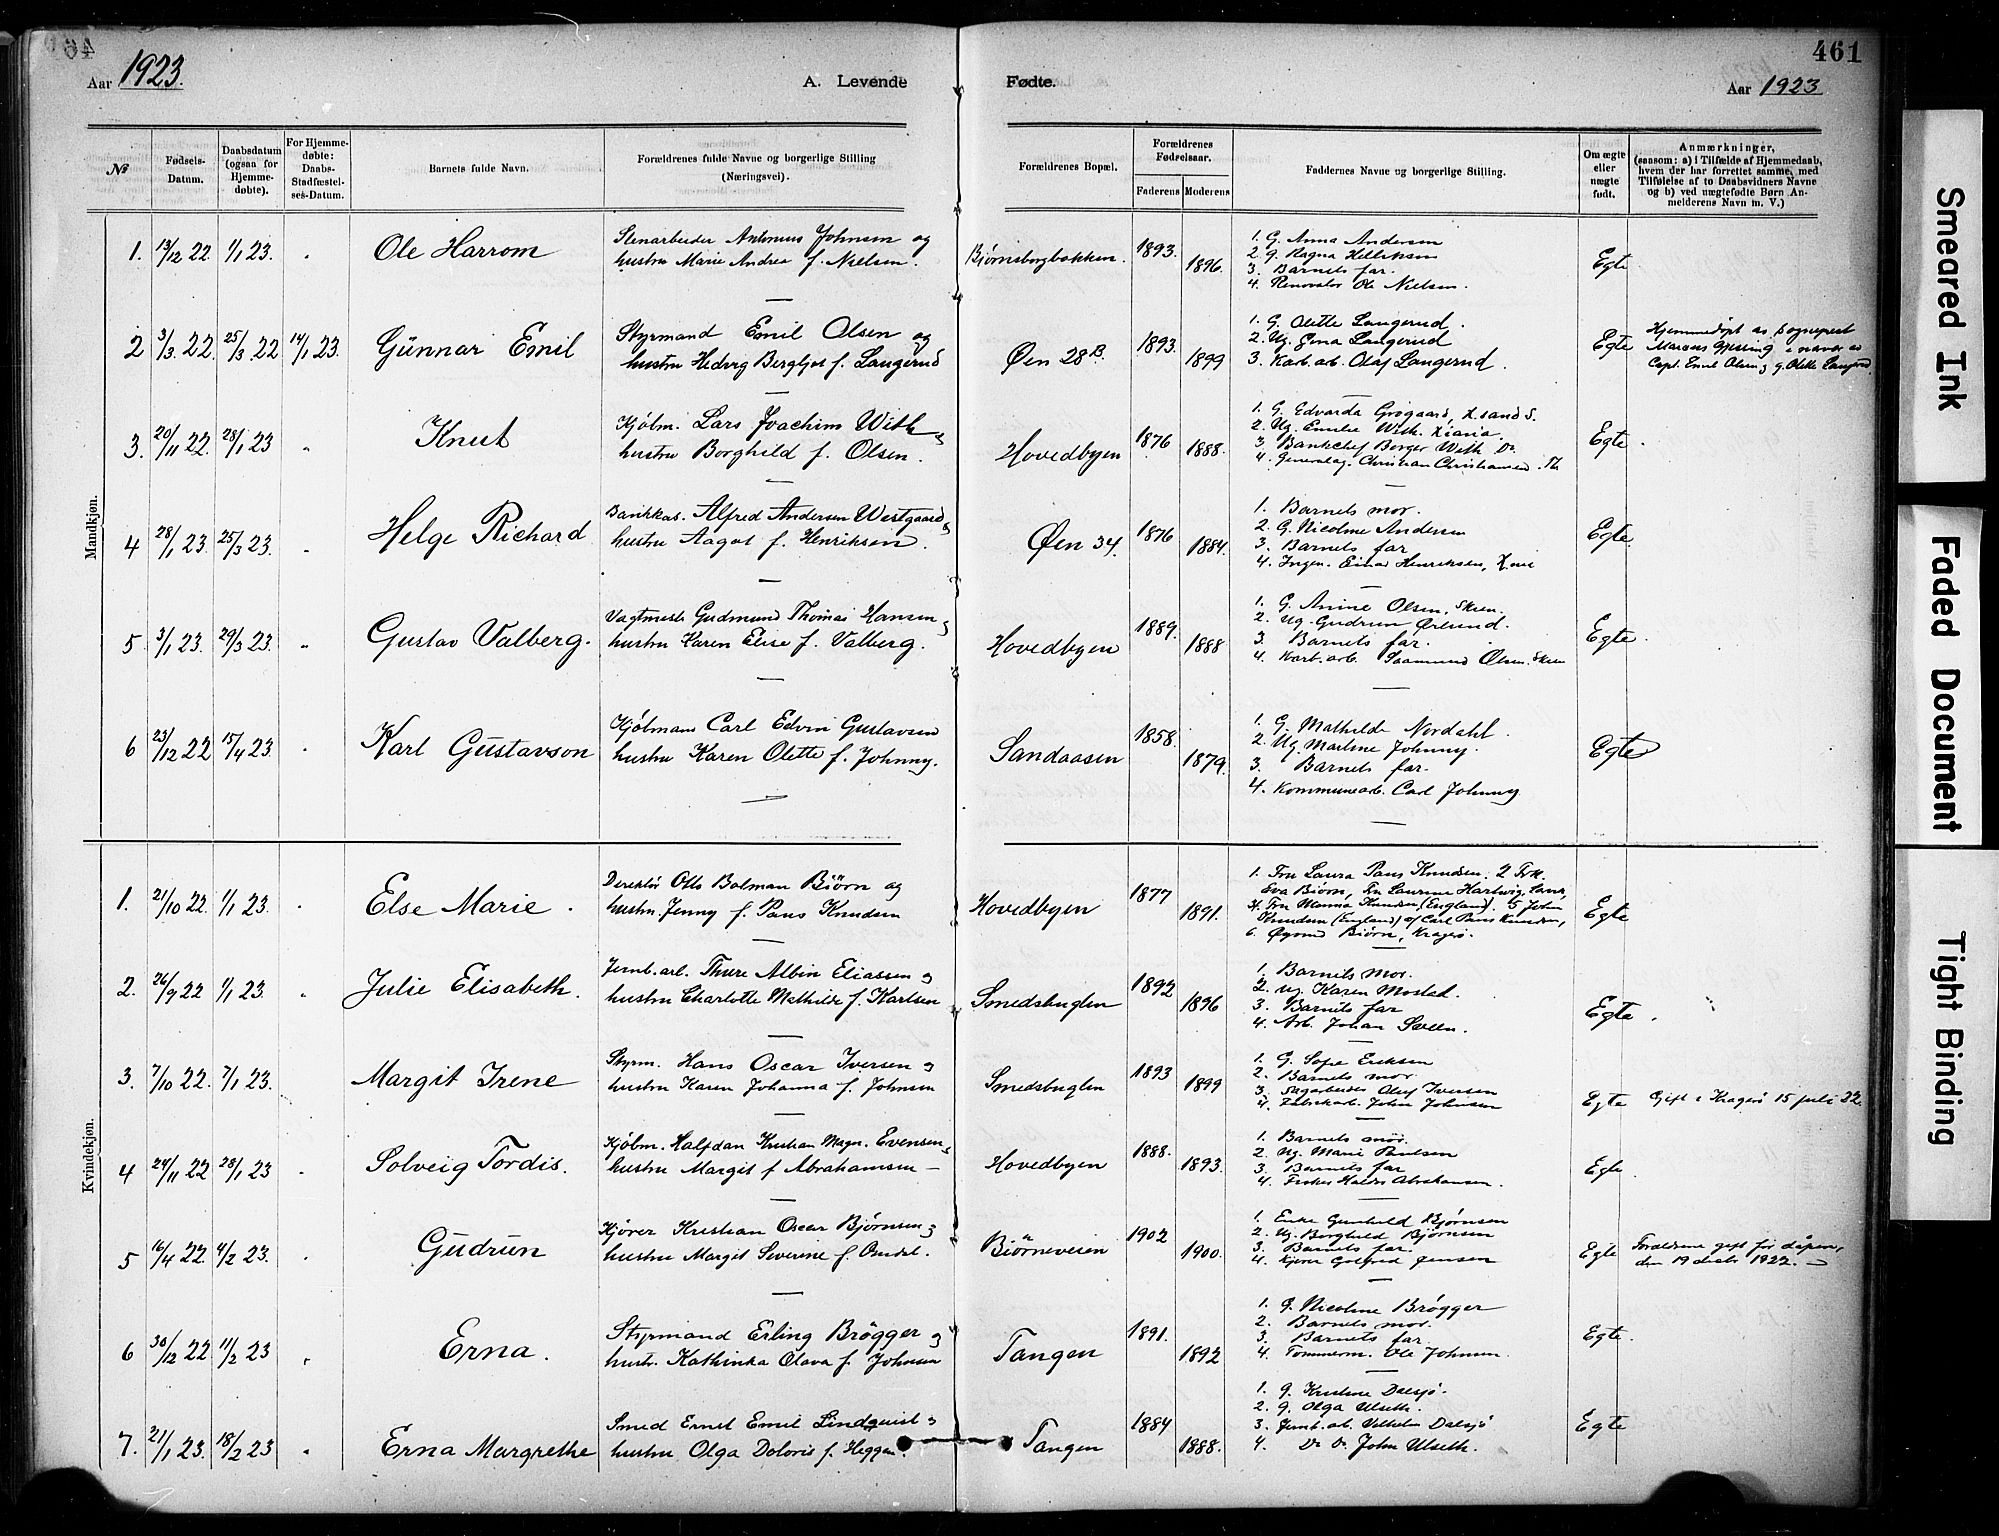 461
Aar 1923.
A. Levende
Fødte.
Aar 1923
№
Fødsels-Datum.
Daabsdatum (ogsaa for Hjemme-døbte).
For Hjemme-døbte: Daabs-Stadfæstel-ses-Datum.
Barnets fulde Navn.
Forældrenes fulde Navne og borgerlige Stilling (Næringsvei).
Forældrenes Bopæl.
Forældrenes Fødselsaar.
Faderens
Moderens
Faddernes Navne og borgerlige Stilling.
Om ægte eller uægte født.
Anmærkninger,
(saasom: a) i Tilfælde af Hjemmedaab,
hvem der har forrettet samme, med
Tilføielse af to Daabsvidners Navne
og b) ved uægtefødte Børn An-
melderens Navn m. V.)
Mandkjøn.
1. 13/12 22. 1/1 23. Ole Harrom
Stenarbeider Antonius Johnsen og
hustru Marie Andrea f. Nielsen.
Bjørnsborgbakken. 1893. 1896.
1. G. Anna Andersen
2. G. Ragna Helliksen
3. Barnets far.
4. Renovatør Ole Nielsen.
Egte
2 3/3 22. 25/3 22 14/1 23. Gunnar Emil
Styrmand Emil Olsen og
hustru Hedvig Bergljot f. Langerud
Øen 28B. 1893. 1899
1. G. Olette Langerud.
2. Ug. Gma Langerud
3. Karb. arb. Olaf Langerud.
Egte
Hjemmedøpt av sogneprest
Marcus Gjessing i nærvær av
Capt. Emil Olsen og G. Olette Langerud
3. 20/11 22. 28/1 23 " Knut
Kjøbm. Lars Joachim With og
hustru Borghild f. Olsen.
Hovedbyen 1876 1888.
1. G. Edvarda Grøgaard, X.sand S.
2. Ug. Emilie With. Xiania.
3. Bankchef Borger With Do
4. Generalag. Christian Christiansen
Egte.
4 28/1 23. 25/3 23. " Helge Richard
Bankkas. Alfred Andersen Westgaard og
hustru Aagot f. Henriksen.
Øen 34. 1876 1884.
1. Barnets mor.
2. G. Nicoline Andersen
3. Barnets far
4. Ingen. Einar Henriksen,
Egte.
5 3/1 23. 29/3 23. " Gustav Valberg.
Vagtmest. Gudmund Thomas Hansen og
hustru Karen Elise f. Valberg.
Hovedbyen 1889. 1888
1. G. Anine Olsen, Skien.
2. Ug. Gudrun Ørlund.
3. Barnets far.
4. Karb. arb. Saamund Olsen. Skien
Egte.
6 23/12 22 15/4 23. Karl Gustavson
Kjøbmand Carl Edvin Gustavsen
hustru Karen Olette f. Johnny.
Sandaasen 1858. 1879.
1. G. Mathilde Nordahl.
2. Ug. Martine Johnny.
3. Barnets far.
4. Kommunearb. Carl Johnny
Egte
Kvindekjøn.
1. 21/10 22. 1/1 23. Else Marie.
Direktør Otto Bolman Biörn og
hustru Jenny f. Paus Knudsen
Hovedbyen 1877 1891.
1. Fru Laura Paus Knudsen. 2 Frk.
Eva Biörn, Fru Laurine Hartwig,
4. Fru Manna Knudsen (England). 5 John
Knudsen (England) 6 Carl Paus Knudsen,
6. Øyvind Biörn, Kragerø.
Egte
2. 26/9 22 1/1 23. Julie Elisabeth.
Jernb. arb. Thure Albin Eliassen og
hustru Charlotte Mathilde f. Karlsen
Smedsbuglen 1892 1896
1. Barnets mor.
2. Ug. Karen Mostad.
3. Barnets far
4. Arb. Johan Sveen.
Egte.
3. 7/10 22. 7/1 23. Margit Irene
Styrm. Hans Oscar Iversen og
hustru Karen Johanna f. Johnsen
Smedsbuglen 1893 1899
1. G. Sofie Eriksen
2. Barnets mor.
3. Sagarbeider Oluf Iversen
4. Fabrikarb. John Johnsen
Egte Gift i Kragerø 15 juli 22.
4 24/11 22 28/1 23 Solveig Tordis.
Kjøbm. Halfdan Kristian Magn. Evensen og
hustru Margit f. Abrahamsen
Hovedbyen 1888. 1893.
1. Barnets mor.
2. Ug. Marie
3. Barnets far
4. Fisker Abrahamsen.
Egte
5 16/4 22. 4/2 23. Gudrun
Kjører Kristian Oscar Bjørnsen og
hustru Margit Severine f. Omdal.
Biörneveien 1902 1900.
1. Enke Gunhild Bjørnsen
2. Ug. Borghild Bjørnsen
3. Barnets far.
4. Kjører Gotfred Jensen
Egte
Foreldrene gift før dåpen,
den 19 decbr 1922.
6 30/12 22 11/2 23 Erna.
Styrmand Erling Brøgger og
hustr. Kathinka Olava f. Johnsen
Tangen 1891. 1892
1. G. Nicoline Brøgger
2. Barnets mor.
3. Barnets far.
4. Tømmerm. Ole Johnsen.
Egte.
7. 21/1 23. 18/2 23 Erna Margrethe
Smed Ernst Emil Lindquist og
hustru Olga Doloris f. Heggen.
Tangen 1884 1888.
1. G. Kristine Dalsjø.
2. G. Olga Ulseth.
3. Jernb. arb. Vilhelm Dalsjø
4. Do Do John Ulseth.
Egte
Smeared Ink
Faded Document
Tight Binding